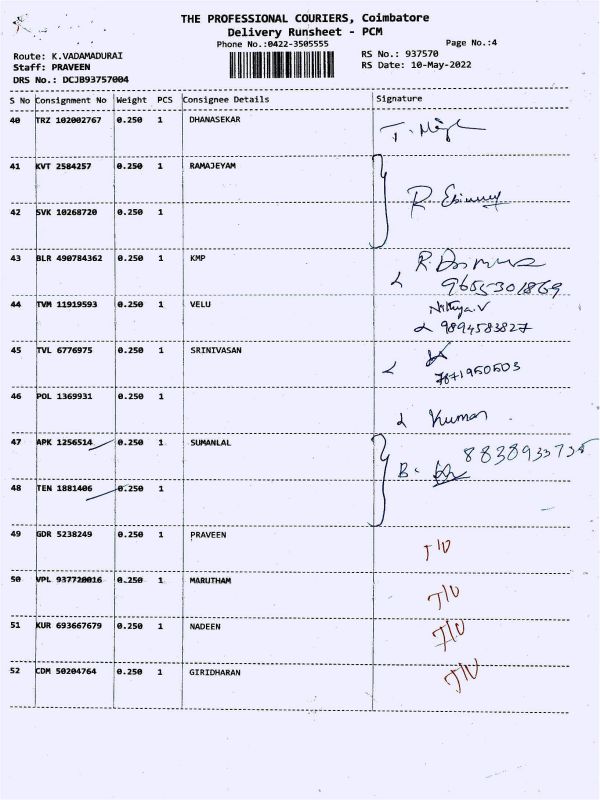 THE PROFESSIONAL COURIERS, Coimbatore
Delivery Runsheet - PCM
Phone No.:0422-3505555
Page No.:4
Route: K.VADAMADURAI
RS No.: 937570
Staff: PRAVEEN
RS Date: 10-May-2022
DRS No.: DCJB93757004
S No Consignment No Weight PCS Consignee Details Signature
40 TRZ 102002767 0.250 1 DHANASEKAR
41 KVT 2584257 0.250 1 RAMAJEYAM
42 SVK 10268720 0.250 1
43 BLR 490784362 0.250 1 KMP
9655301869
44 TVM 11919593 0.250 1 VELU Nithya.V
9894583827
45 TVL 6776975 0.250 1 SRINIVASAN
7871950503
46 POL 1369931 0.250 1 Kumar
47 APK 1256514 0.250 1 SUMANLAL
48 TEN 1881406 0.250 1
49 GDR 5238249 0.250 1 PRAVEEN
50 VPL 937720016 0.250 1 MARUTHAM
51 KUR 693667679 0.250 1 NADEEN
52 CDM 50204764 0.250 1 GIRIDHARAN